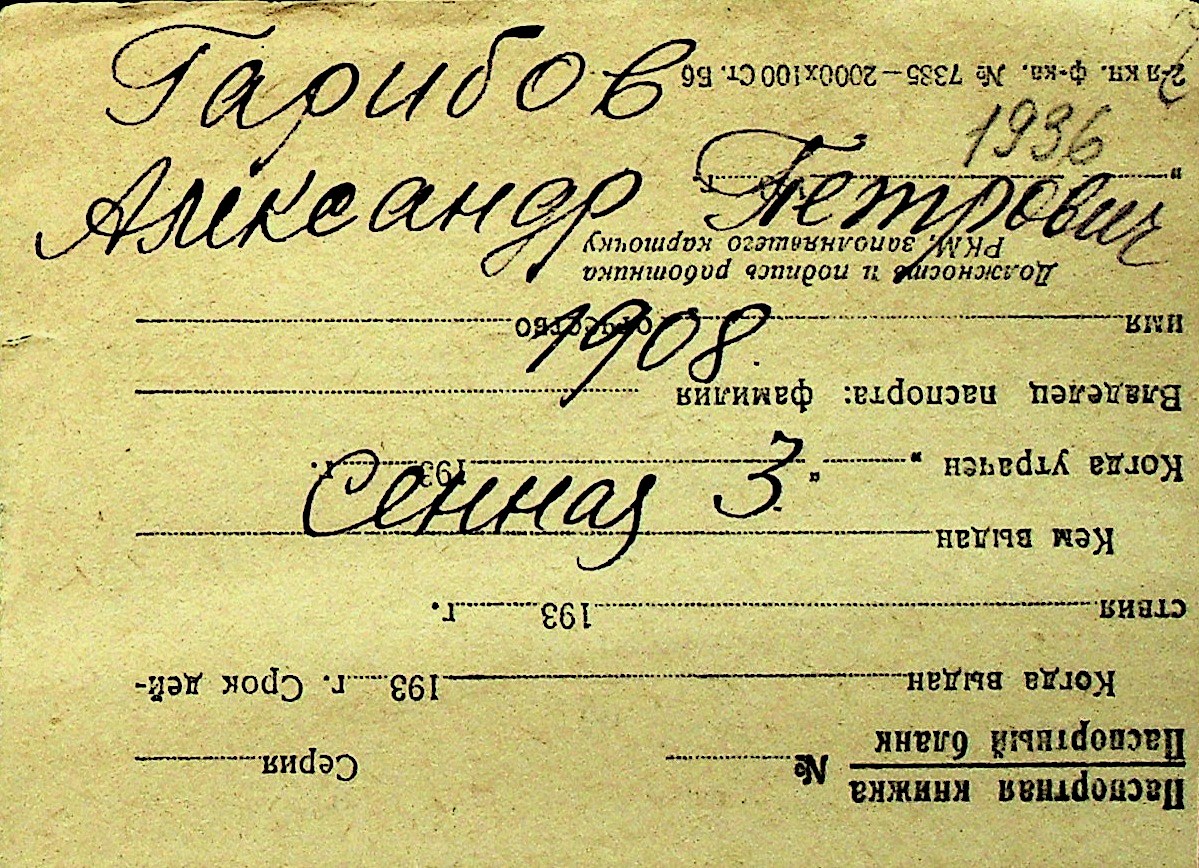 Гарибов
Александр Петрович
1908.
Сенная 3.
1936
Паспортная книжка
Паспортный бланк
№ Серия
Когда выдан 193 г. Срок дей-
ствия 193 г.
Кем выдан
Когда утрачен „ “ 193 г.
Владелец паспорта: фамилия
имя отчество
Должность и подпись работника
РКМ, заполнявшего карточку
„ г.
2-я кн. ф-ка. № 7385—2000х100 Ст. Б6